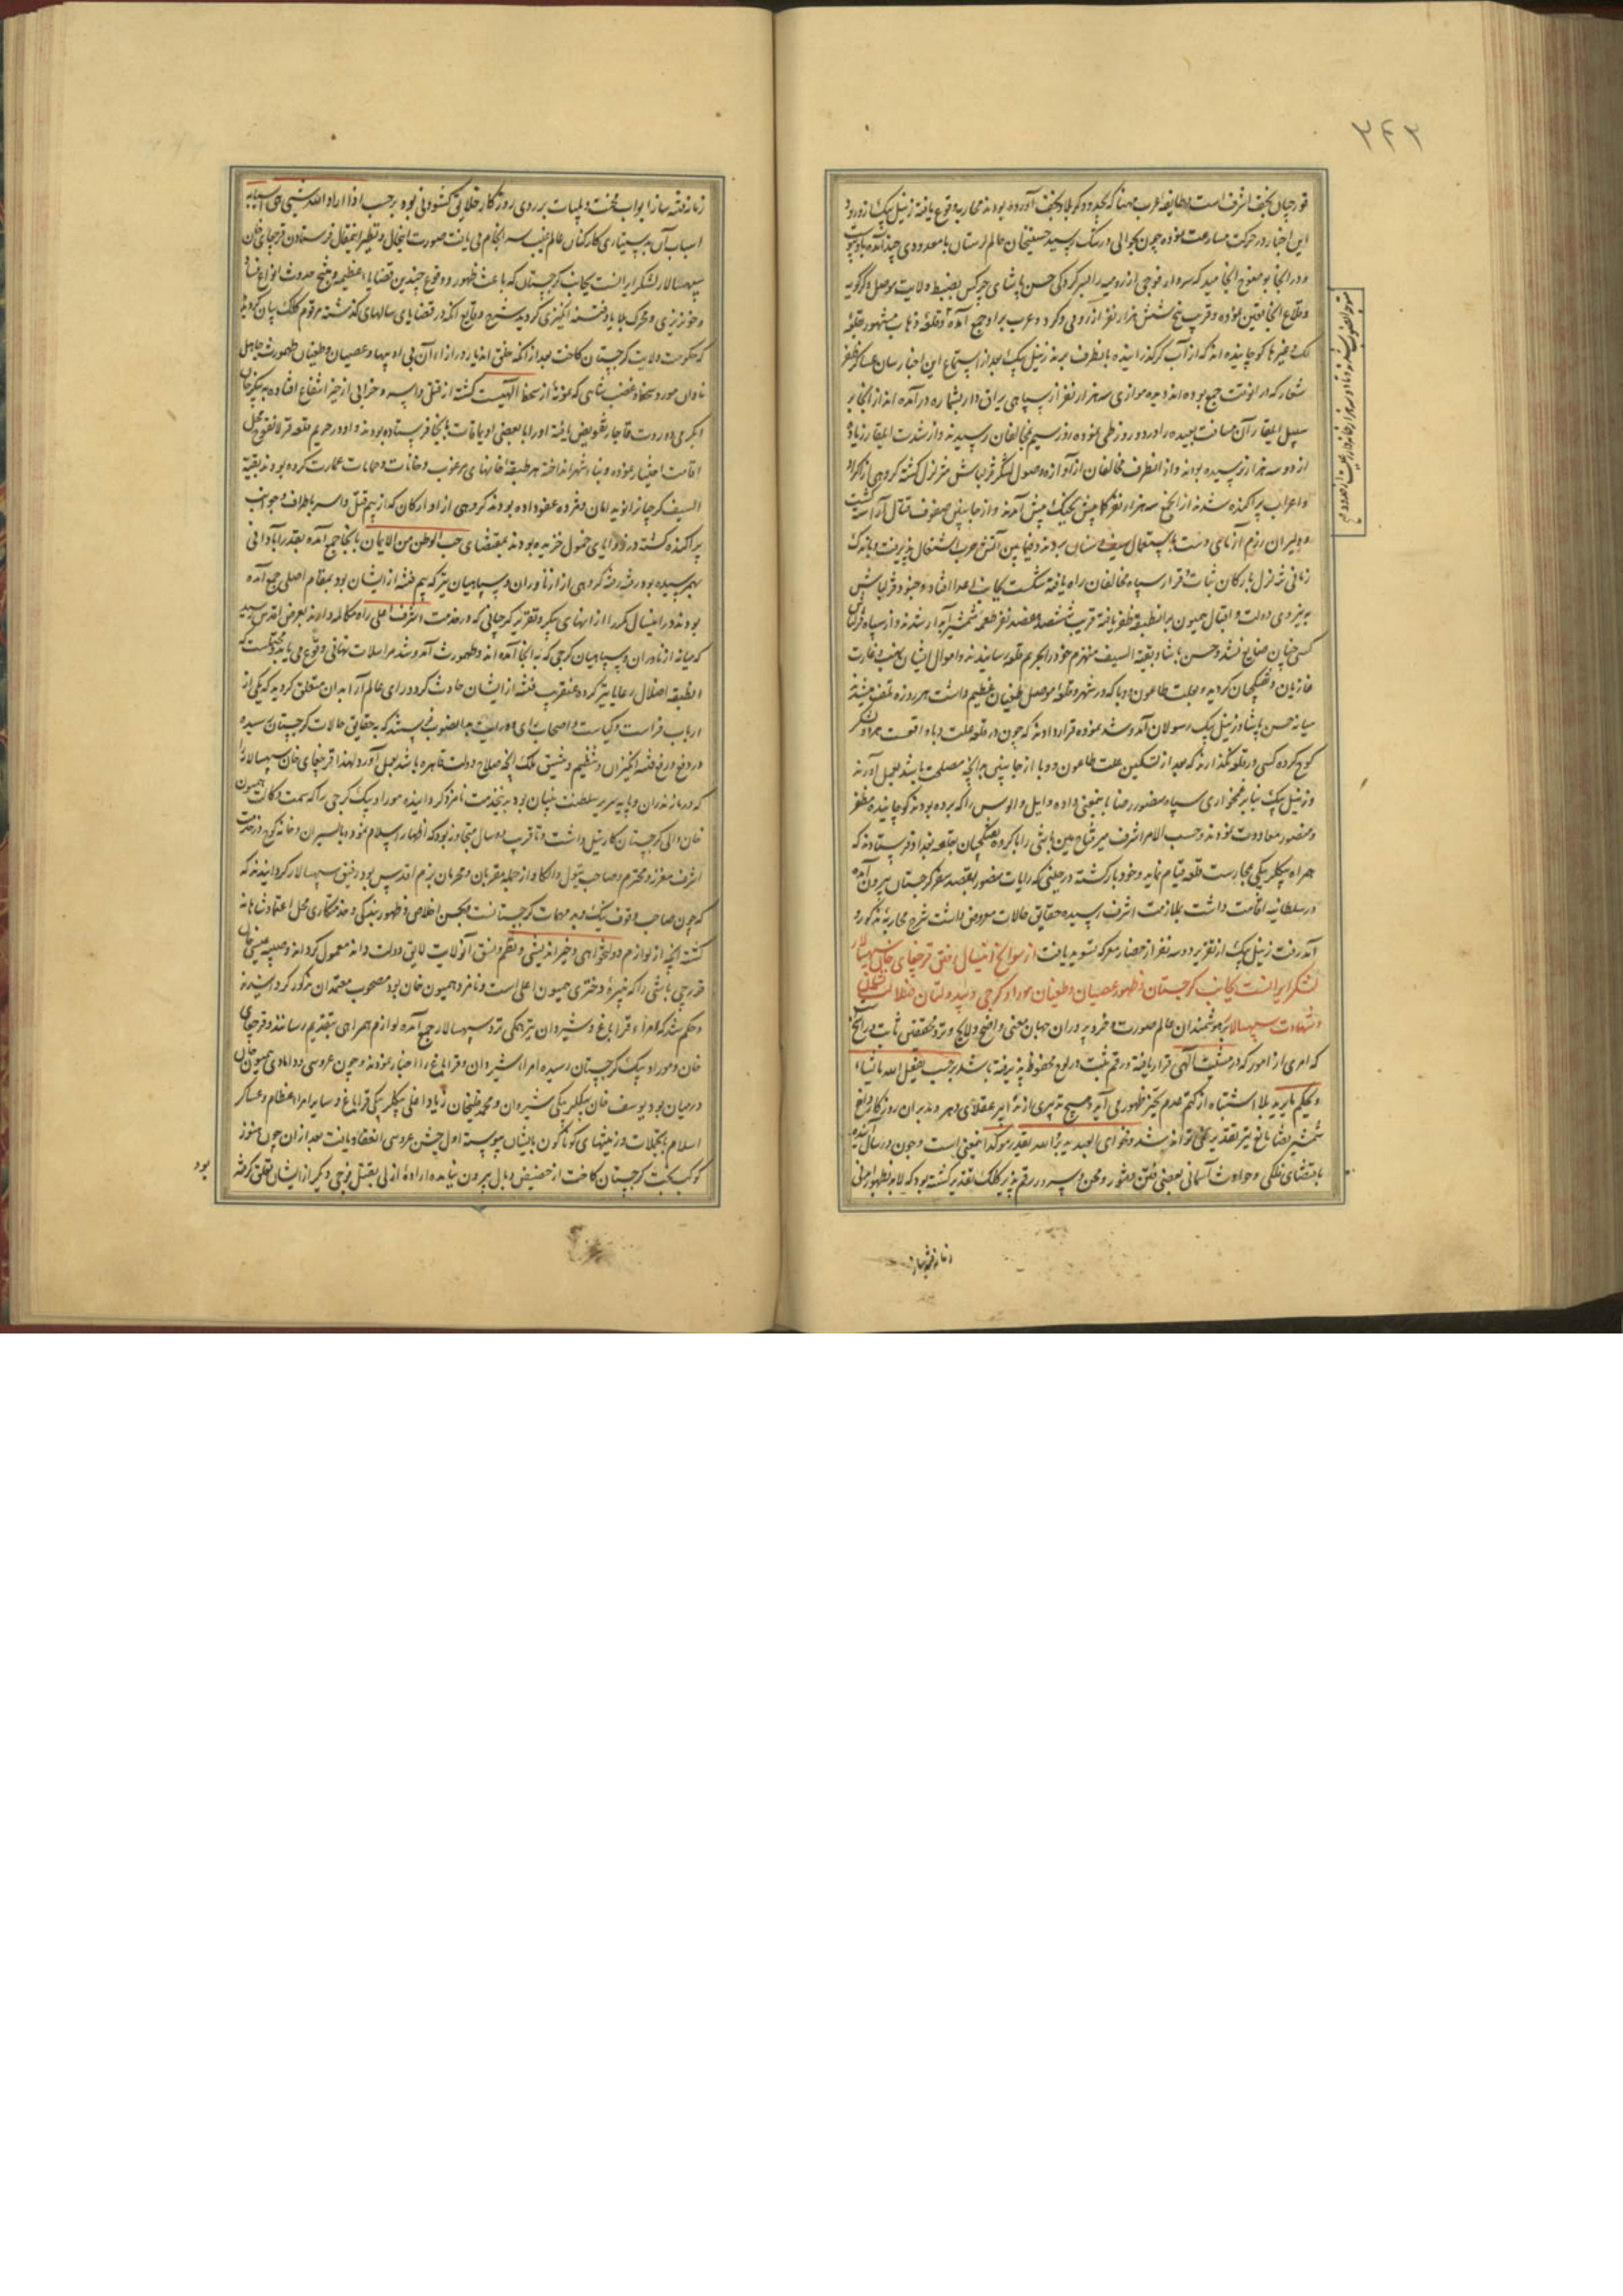 ۳۴۳
قورچیان نجف اشرف است و طایفه عرب
این اخبار در حرکت مسارعت نموده چون بحوالی رسید حسینخان حاکم لرستان با معدودی چند آمده
و در آنجا بوضوح انجامید که سردار فوجی از رومیه حسن پاشای چرکس بضبط ولایت موصل و کرکویه
و قلاع آنجا تعین نموده و قریب پنج شش هزار نفر از رومی و کرد و عرب بر او جمع آمده
که از آب گذرانیده بدانطرف برند زینل بیک بعد از استماع این اخبار با عساکر ظفر
شعار که در آنوقت جمع بوده‌اند موازی سه هزار نفر از سپاهی یراق دار بشماره درآمده‌اند از آنجا بر
سبیل ایلغار آن مسافت بعیده را در دو روز طی نموده روز سیم بمخالفان رسیدند و از شدت ایلغار زیاده
از دو سه هزار نرسیده بودند و از آنطرف مخالفان از آوازه وصول لشکر قزلباش متزلزل گشته گروهی از اکراد
و اعراب پراکنده شدند از آنجمع سه هزار نفر کما بیش بجنگ پیش آمدند و از جانبین صفوف قتال آراسته گشت
و دلیران رزم آزمای دست باستعمال سیف و سنان بردند و فیمابین آتش حرب اشتعال پذیرفت و باندک
زمانی تزلزل بارکان ثبات و قرار سپاه مخالفان راه یافته شکست بجانب اعدا افتاد و جنود قزلباش
به نیروی دولت و اقبال همیون بر آنطبقه ظفر یافته قریب ششصد هفتصد نفر طعمه شمشیر آبدار شدند و از سپاه قزلباش
کسی چنان ضایع نشد و حسن پاشا و بقیة السیف منهزم خود را بحریم قلعه رسانیدند و اموال ایشان بنهب و غارت
غازیان و تفنگچیان گردید و بعلت طاعون و وبا که در شهر و قلعه موصل طغیان عظیم داشت هر روزه تلف میشدند
میانه حسن پاشا و زینل بیک رسولان آمد و شد نموده قرار دادند که چون در قلعه علت وباء است هر دو لشکر
کوچ کرده کسی در قلعه نگذارند که بعد از تسکین علت طاعون و وبا از جانبین هر آنچه مصلحت باشد بعمل آورند
و زینل بیک بنابر غمخواری سپاه منصور رضا باینمعنی داده و ایل و الوس را که برده بودند کوچانیده مظفر
و منصور معاودت نمودند و حسب الامر اشرف میر فتاح مین باشی را با گروه تفنگچیان بقلعه بغداد فرستادند که
همراه بیکلربیکی بحراست قلعه قیام نماید و خود بازگشته در حینی که رایات منصور بقصد سفر گرجستان بیرون آمده
در سلطانیه اقامت داشت بملازمت اشرف رسیده حقایق حالات معروض داشت شرح محاربه مذکوره
از تقریر دو سه نفر از حضار معرکه تسوید یافت از سوانح اینسال رفتن قرچغای خان سپهسالار
لشکر ایرانست بجانب گرجستان و ظهور عصیان و طغیان موراو گرجی
و شهادت سپهسالار بر هوشمندان عالم صورت و خرد پروران جهان معنی واضح و لایح و نزد محققین ثابت و راسخ
که امری از امور که در مشیت الهی قرار یافته و رقم ثبت در لوح محفوظ پذیرفته باشد بر حسب یفعل الله ما یشاء
و یحکم ما یرید بلا اشتباه از کتم عدم بحیز ظهور می آید و هیچ تدبیری از تدابیر عقلای دهر و مدبران روزگار دافع
شمشیر قضا و مانع تیر تقدیر نمی تواند شد و فحوای العبد یدبر و الله یقدر موکد اینمعنی است و چون در سال آینده
باقتضای فلکی و حوادث آسمانی بعضی فتن و شور و محن و سرور رقم پذیر کلک تقدیر گشته بود که لابد بظهور
زمانه فتنه ساز
زمانه فتنه ساز ابواب محنت و بلیات بر روی روزگار خلایق گشودنی بود بر حسب اذا اراد الله شیئا هیّأ اسبابه
اسباب آن به پیشکاری کارکنان عالم غیب سرانجام می یافت صورت اینحال و نظیر اینمقال فرستادن قرچغای خان
سپهسالار لشکر ایرانست بجانب گرجستان که باعث ظهور و وقوع چندین قضایاء عظیمه و منتج حدوث انواع فساد
و خونریزی و محرک بلایا و فتنه انگیزی گردید شرح وقایع آنکه در قضایای سالهای گذشته مرقوم کلک بیان گردیده
که حکومت ولایت گرجستان کاخت بعد از آنکه خلق آن دیار در ازاء آن بی ادبیها و عصیان و طغیان طهمورث جاهل
نادان مورد سخط و غضب شاهی که نمونه از سخط الهیست گشته از قتل و اسیر و خرابی از حیز انتفاع افتاده به پیکرخان
ایگرمی دورت قاجار تفویض یافته او را با بعضی اویماقات بآنجا فرستاده بودند و او در حریم قلعه قرلانقوج محل
اقامت اختیار نموده و بناء شهر انداخته هر طبقه خانهای مرغوب و خانات و حمامات عمارت کرده بودند بقیة
السیف گرجیانرا نوید امان و مژده عفو داده بودند گروهی از اوارگان که از بیم قتل و اسر باطراف و جوانب
پراکنده گشته در زوایای خمول خزیده بودند بمقتضای حب الوطن من الایمان بآنجا جمع آمده بقدر آبادانی
بهم رسیده بود رفته رفته گروهی از ازناوران و سپاهیان نیز که بیم فتنه از ایشان بود بمقام اصلی جمع آمده
بودند و در اینسال مکررا از انهای پیکر و تقریر گرجیانی که در خدمت اشرف اعلی راه مکالمه دارند بعرض اقدس رسید
که میانه ازناوران و سپاهیان گرجی که به آنجا آمده‌اند و طهمورث آمد و شد مراسلات نهانی وقوع می یابد
انطبقه اضلال رعایا نیز کرده عنقریب فتنه از ایشان حادث گردد رای عالم آرا بدان متعلق گردید که یکی از
ارباب فراست و کیاست و اصحاب رای و درایت بدانصوب فرستند که بحقایق حالات گرجستان رسیده
در دفع و رفع فتنه انگیزان و تنظیم و تنسیق ملک آنچه صلاح دولت قاهره باشد بعمل آورد لهذا قرچغای خان سپهسالار را
که در مازندران و پایه سریر سلطنت بنیان بود بدینخدمت نامزد گردانیده موراو بیک گرجی را که سمت وکالت همیون
خان والی گرجستان کارتیل داشت و تا قریب دو سال متجاوز بود که اظهار اسلام نموده با پسران و خانه کوچ در خدمت
اشرف معزز و محترم و صاحب تیول و الکا و از جمله مقربان و محرمان بزم اقدس بود رفیق سپهسالار گردانیدند که
که چون صاحب وقوف نیک و بد مهمات گرجستانست و بحسن اخلاص و ظهور بندگی و خدمتکاری محل اعتماد شاهانه
گشته آنچه از لوازم دولتخواهی و خیراندیشی و نظم و نسق آنولایت لایق دولت داند معمول گرداند و صبیه عیسی خان
قورچی باشی را که نبیره دختری همیون اعلی است و نامزد همیون خان بود مصحوب معتمدان مذکور گردانیدند
و حکم شد که امراء قراباغ و شیروان نیز همگی نزد سپهسالار جمع آمده لوازم همراهی بتقدیم رسانند و قرچغای
خان و موراو بیک گرجستان رسیده امراء شیروان و قراباغ را اخبار نمودند و چون عروسی و دامادی همیون خان
در میان بود یوسف خان بیکلربیکی شیروان و محمد قلیخان زیاد اغلی بیکلربیکی قراباغ و سایر امراء عظام و عساکر
اسلام بتجملات و زینتهای گوناگون بایشان پیوسته اول جشن عروسی انعقاد یافت بعد از آن چون هنوز
کوکب بخت گرجستان کاخت از حضیض وبال بیرون نیامده اراده ازلی بقتل فوجی دیگر از ایشان تعلق گرفته
بود